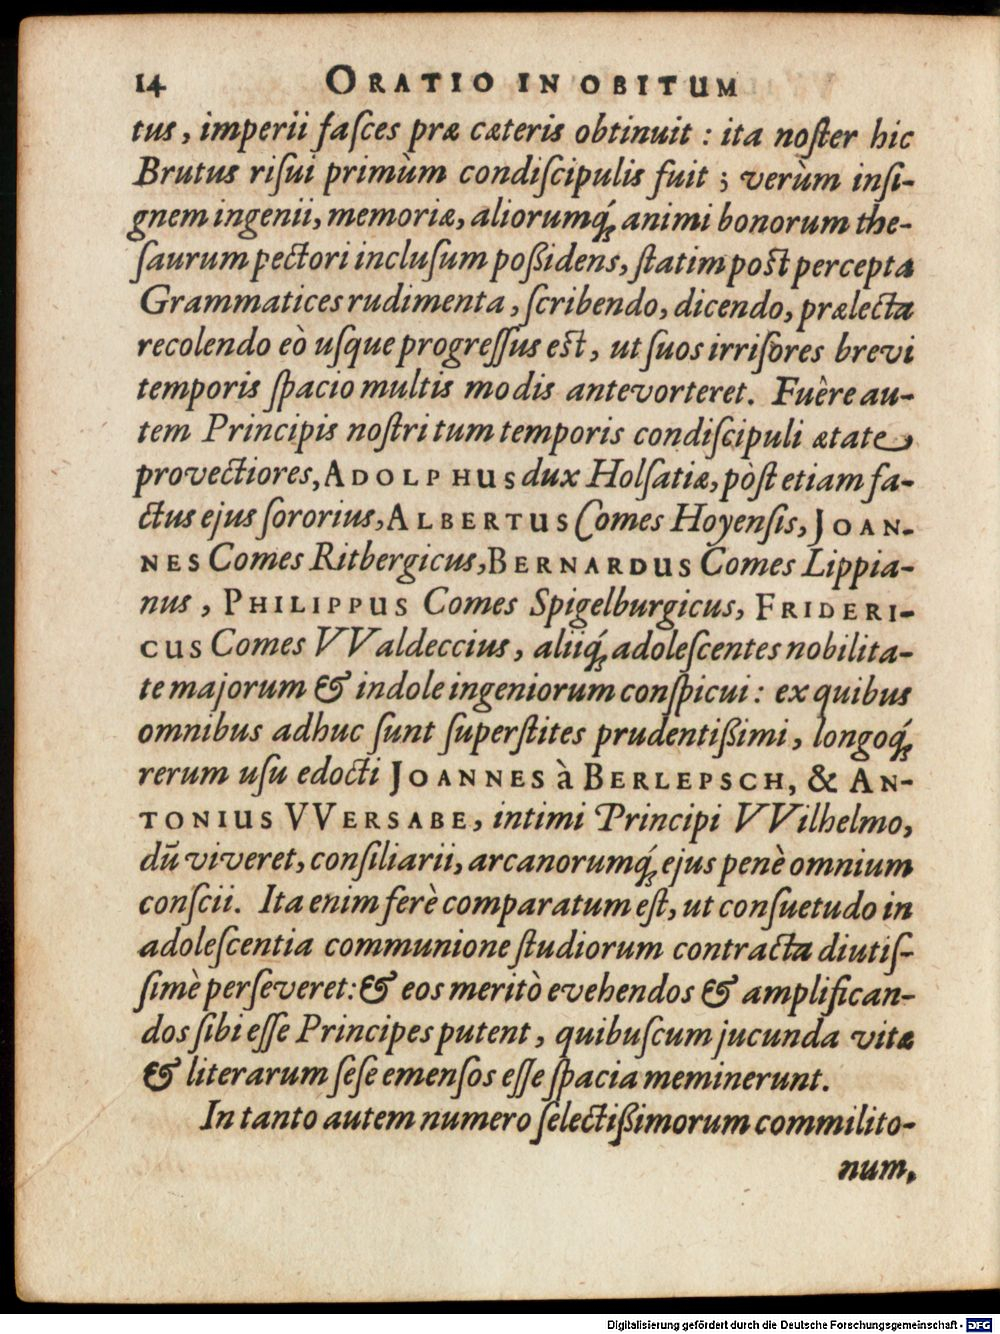 14 ORATIO IN OBITUM
tus, imperii faſces præ cæteris obtinuit : ita noſter hic
Brutus riſui primùm condiſcipulis fuit ; verùm inſi-
gnem ingenii, memoriæ, aliorumq́; animi bonorum the-
ſaurum pectori incluſum poßidens, ſtatim post percepta
Grammatices rudimenta, ſcribendo, dicendo, prælecta
recolendo eò uſque progreſſus est, ut ſuos irriſores brevi
temporis ſpacio multis modis antevorteret. Fuêre au-
tem Principis noſtri tum temporis condiſcipuli ætate
provectiores, ADOLPHUS dux Holſatiæ, pòſt etiam fa-
ctus ejus ſororius, ALBERTUS Comes Hoyenſis, JOAN-
NES Comes Ritbergicus, BERNARDUS Comes Lippia-
nus, PHILIPPUS Comes Spigelburgicus, FRIDERI-
CUS Comes VValdeccius, aliiq́; adoleſcentes nobilita-
te majorum & indole ingeniorum conſpicui : ex quibus
omnibus adhuc ſunt ſuperſtites prudentißimi, longoq́;
rerum uſu edocti JOANNES à BERLEPSCH, & AN-
TONIUS VVERSABE, intimi Principi VVilhelmo,
dū viveret, conſiliarii, arcanorumq́; ejus penè omnium
conſcii. Ita enim ferè comparatum eſt, ut conſuetudo in
adoleſcentia communione ſtudiorum contracta diutiſ-
ſimè perſeveret : & eos meritò evehendos & amplifican-
dos ſibi eſſe Principes putent, quibuſcum jucunda vitæ
& literarum ſeſe emenſos eſſe ſpacia meminerunt.
In tanto autem numero ſelectißimorum commilito-
num,
Digitalisierung gefördert durch die Deutsche Forschungsgemeinschaft - DFG